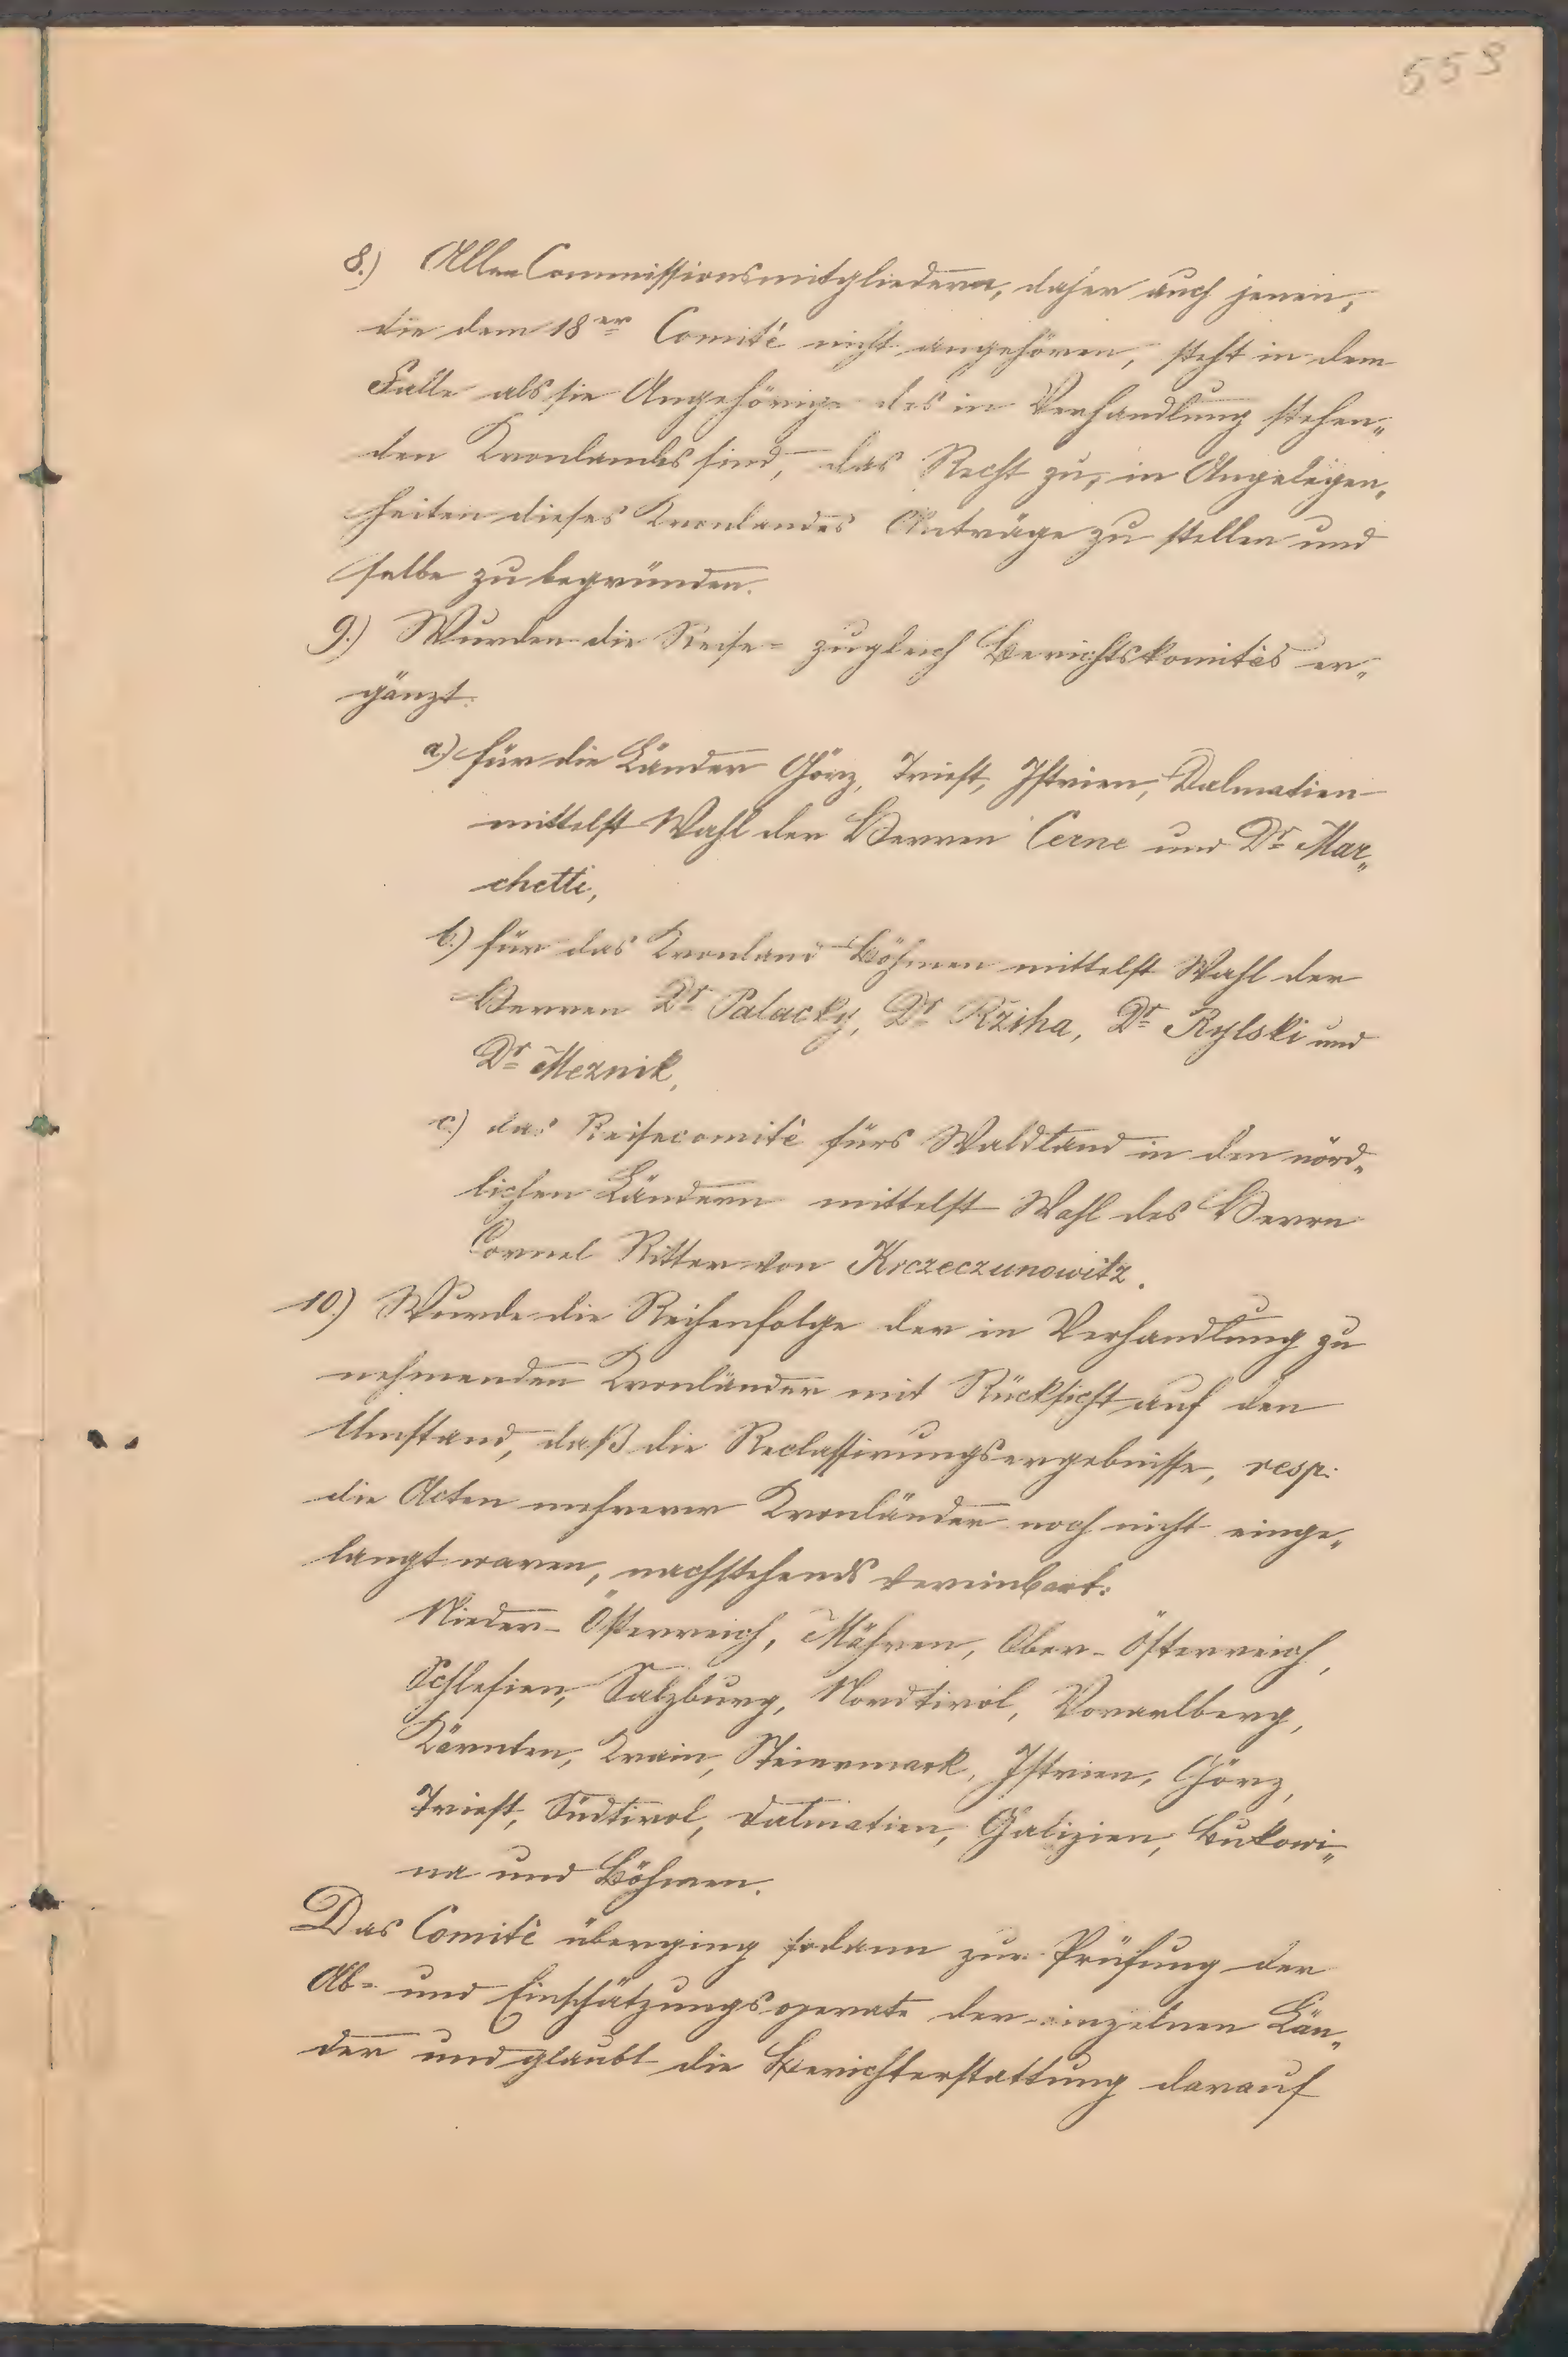 553
8.) Allen Commissionsmitgliedern, daher auch jenen,
die dem 18er Comité nicht angehören, steht in dem
Falle als sie Angehörige des in Verhandlung stehen„
den Kronlandes sind, das Recht zu, in Angelegen„
heiten dieses Kronlandes Anträge zu stellen und
selbe zu begründen.
9.) Wurden die Reise- zugleich Berichtskomités er„
gänzt:
a.) für die Länder Görz, Triest, Istrien, Dalmatien
mittelst Wahl der Herren Cerne und Dr Mar„
chetti,
b.) für das Kronland Böhmen mittelst Wahl der
Herren Dr Palacky, Dr Rziha, Dr Rylski und
Dr Meznik,
c.) das Reisecomité fürs Waldland in den nörd„
lichen Ländern mittelst Wahl des Herrn
Cornel Ritter von Krczeczunowitz.
10.) Wurde die Reihenfolge der in Verhandlung zu
nehmenden Kronländer mit Rücksicht auf den
Umstand, daß die Reclassirungsergebnisse, resp.
die Acten mehrerer Kronländer noch nicht einge„
langt waren, nachstehends vereinbart:
Nieder-Österreich, Mähren, Ober-Österreich,
Schlesien, Salzburg, Nordtirol, Vorarlberg,
Kärnten, Krain, Steiermark, Istrien, Görz,
Triest, Südtirol, Dalmatien, Galizien, Bukowi„
na und Böhmen.
Das Comité überging sodann zur Prüfung der
Ab- und Einschätzungsoperate der einzelnen Län„
der und glaubt die Berichterstattung darauf